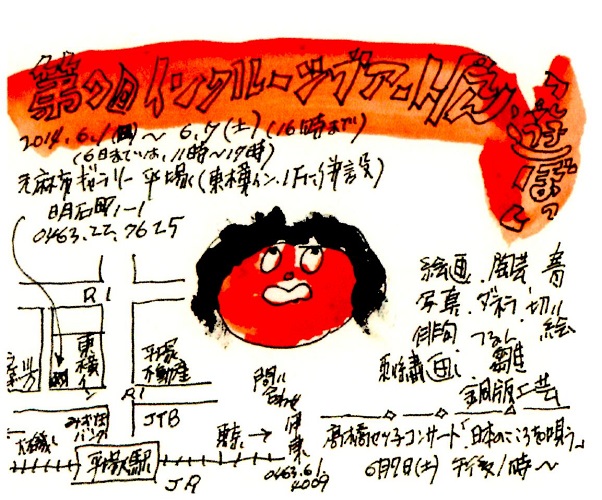 第7回インクルーシブアート展
で遊ぼっ
2014.6.1(日)〜6.7(土)(16時まで)
(6日までは、11時〜19時)
元麻布ギャラリー平塚(東横イン.1F
明石町1-1
0463.22.7625
絵画.陶芸.書
写真.ダネラ.切り絵
俳句 つるし雛
銅版工芸
R1
東横イン
平塚不動産
R1
みずほバンク
JTB
大磯
平塚駅
東京→
JR
問い合わせ
伊東
0463.61.4009
高木橋セツ子コンサート「日本のこころを唄う」
6月7日(土) 午後1時〜